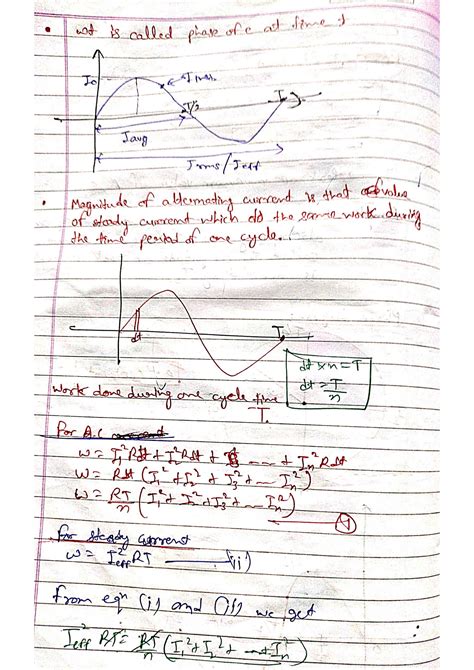 • wt is called phase of c at time t
I₀
Irms
T/2
T
Iavg
Irms/Ieff
• Magnitude of alternating current is that value
of steady current which do the same work during
the time period of one cycle.
dt
T
dt×n=T
dt=T/n
Work done during one cycle time
T.
For A.C
W = I₁²Rdt + I₂²Rdt + --- + Iₙ²Rdt
W = Rdt (I₁² + I₂² + I₃² + --- Iₙ²)
W = RT/n (I₁² + I₂² + I₃² + --- Iₙ²)
For steady current
W = I²eff RT ——(ii)
from eqn (i) and (ii) we get
I²eff RT = RT/n (I₁² + I₂² + --- + Iₙ²)